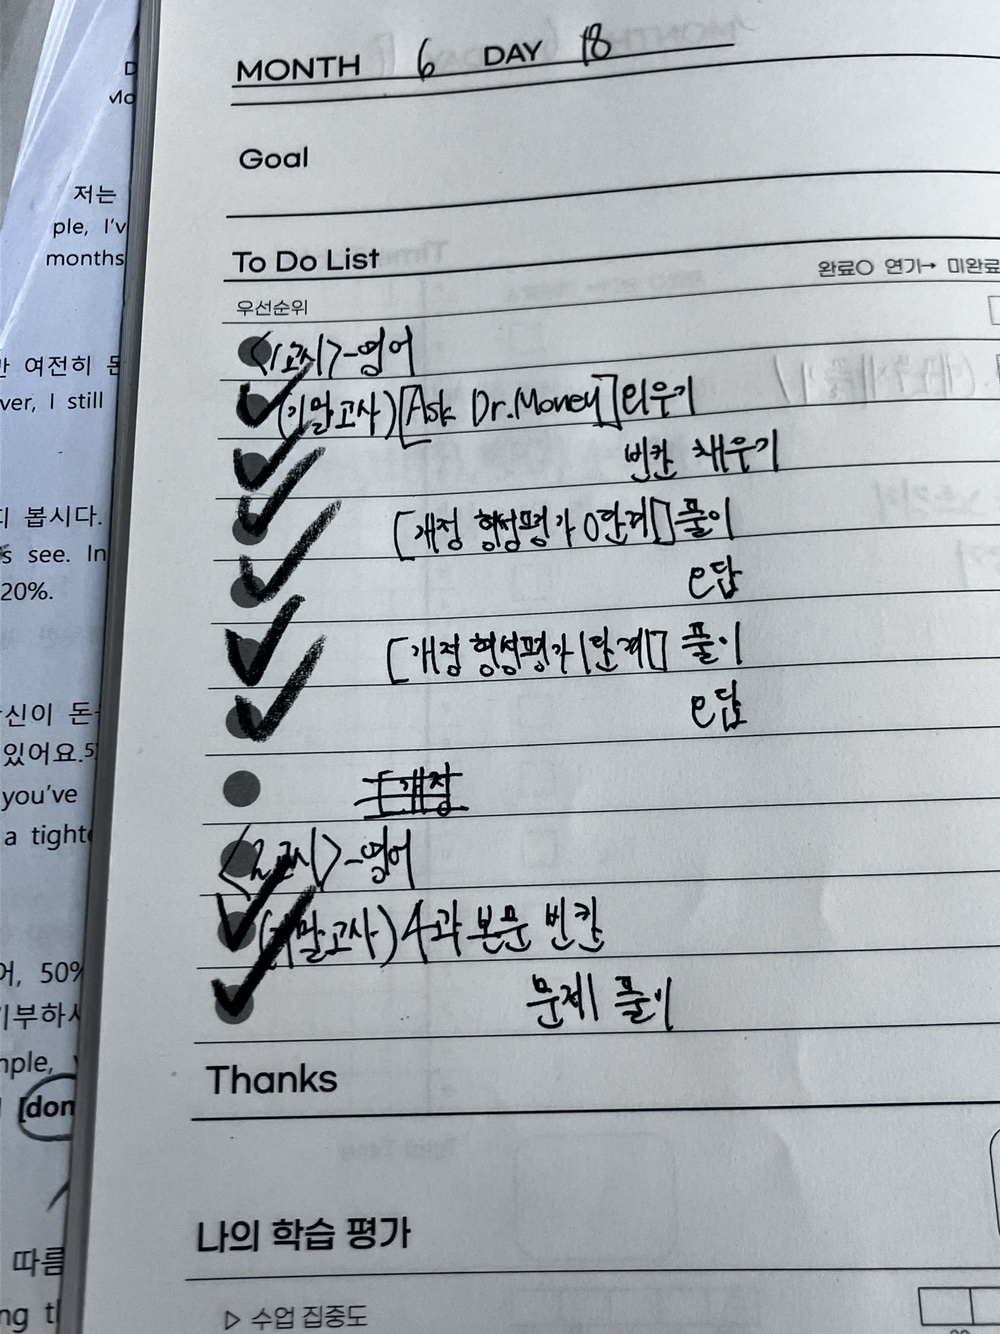 MONTH 6 DAY 18
Goal
To Do List
완료○ 연기→ 미완료
우선순위
<1교시>-영어
(기말고사)[Ask Dr.Money]외우기
빈칸 채우기
[개정 형성평가 0단계] 풀이
e답
[개정 형성평가 1단계] 풀이
e답
<2교시>-영어
(기말고사) 4과 본문 빈칸
문제 풀이
Thanks
나의 학습 평가
▷ 수업 집중도
저는
ple, I'v
months
여전히 돈
ver, I still
봅시다.
s see. In
20%.
신이 돈
있어요.
you've
a tighte
어, 50%
기부하시
mple,
[don
따름
ng tl